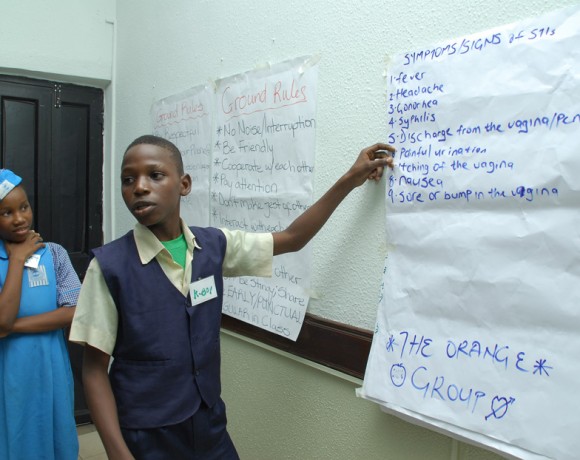 Ground Rules
Ground Rules
*No Noise/Interruption
*Be friendly
*Cooperate w/each other
*Pay attention
*Don't make jest of other
Interact
other
Share
EARLY/PUNCTUAL
in Class
K-BOY
SYMPTOMS/SIGNS of STIs
1-fever
2-Headache
3-Gonorhea
4-Syphilis
5-Discharge from the vagina/Pen
Painful urination
Itching of the vagina
8-Nausea
9-Sore or bump in the vagina
*THE ORANGE*
GROUP